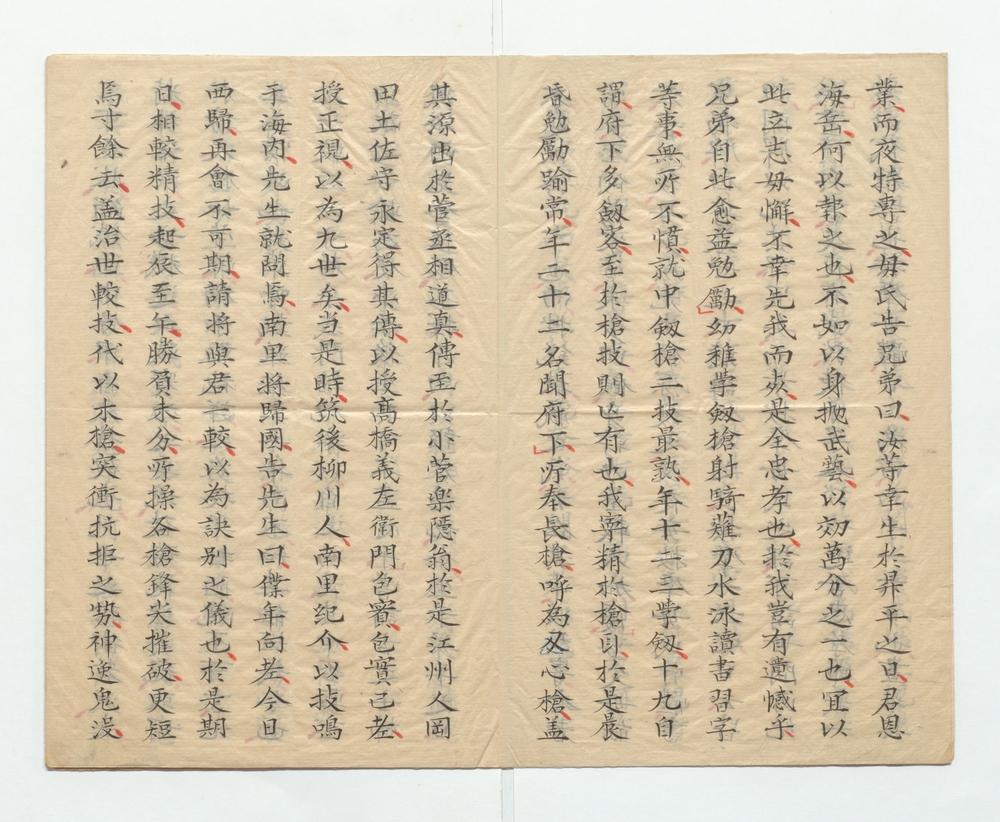 業而夜特専之母氏告兄弟曰汝等幸生於昇平之日君恩
海岳何以報之也不如以身抛武藝以効萬分之一也宜以
此立志毋懈不幸先我而処是全忠孝也於我豈有遺憾乎
兄弟自此愈益勉勵幼稚学劔槍射騎薙刀水泳讀書習字
等事無所不慎就中劔槍二技最熟年十二三学劔十九自
謂府下多劔客至於槍技則亡有也我専精於槍耳於是晨
昏勉勵踰常年二十二名聞府下所奉長槍呼為又心槍盖
其源出於菅丞相道真傳至於小菅楽隠翁於是江州人岡
田土佐守永定得其傳以授髙橋義左衛門包實包實已老
授正視以為九世矣当是時筑後柳川人南里紀介以技鳴
于海内先生就問焉南里将歸國告先生曰僕年向老今日
西歸再會不可期請将與君一較以為訣別之儀也於是期
日相較精技起辰至午勝負未分所操各槍鋒尖摧破更短
焉寸餘云盖治世較技代以木槍突衝抗拒之勢神逸鬼没